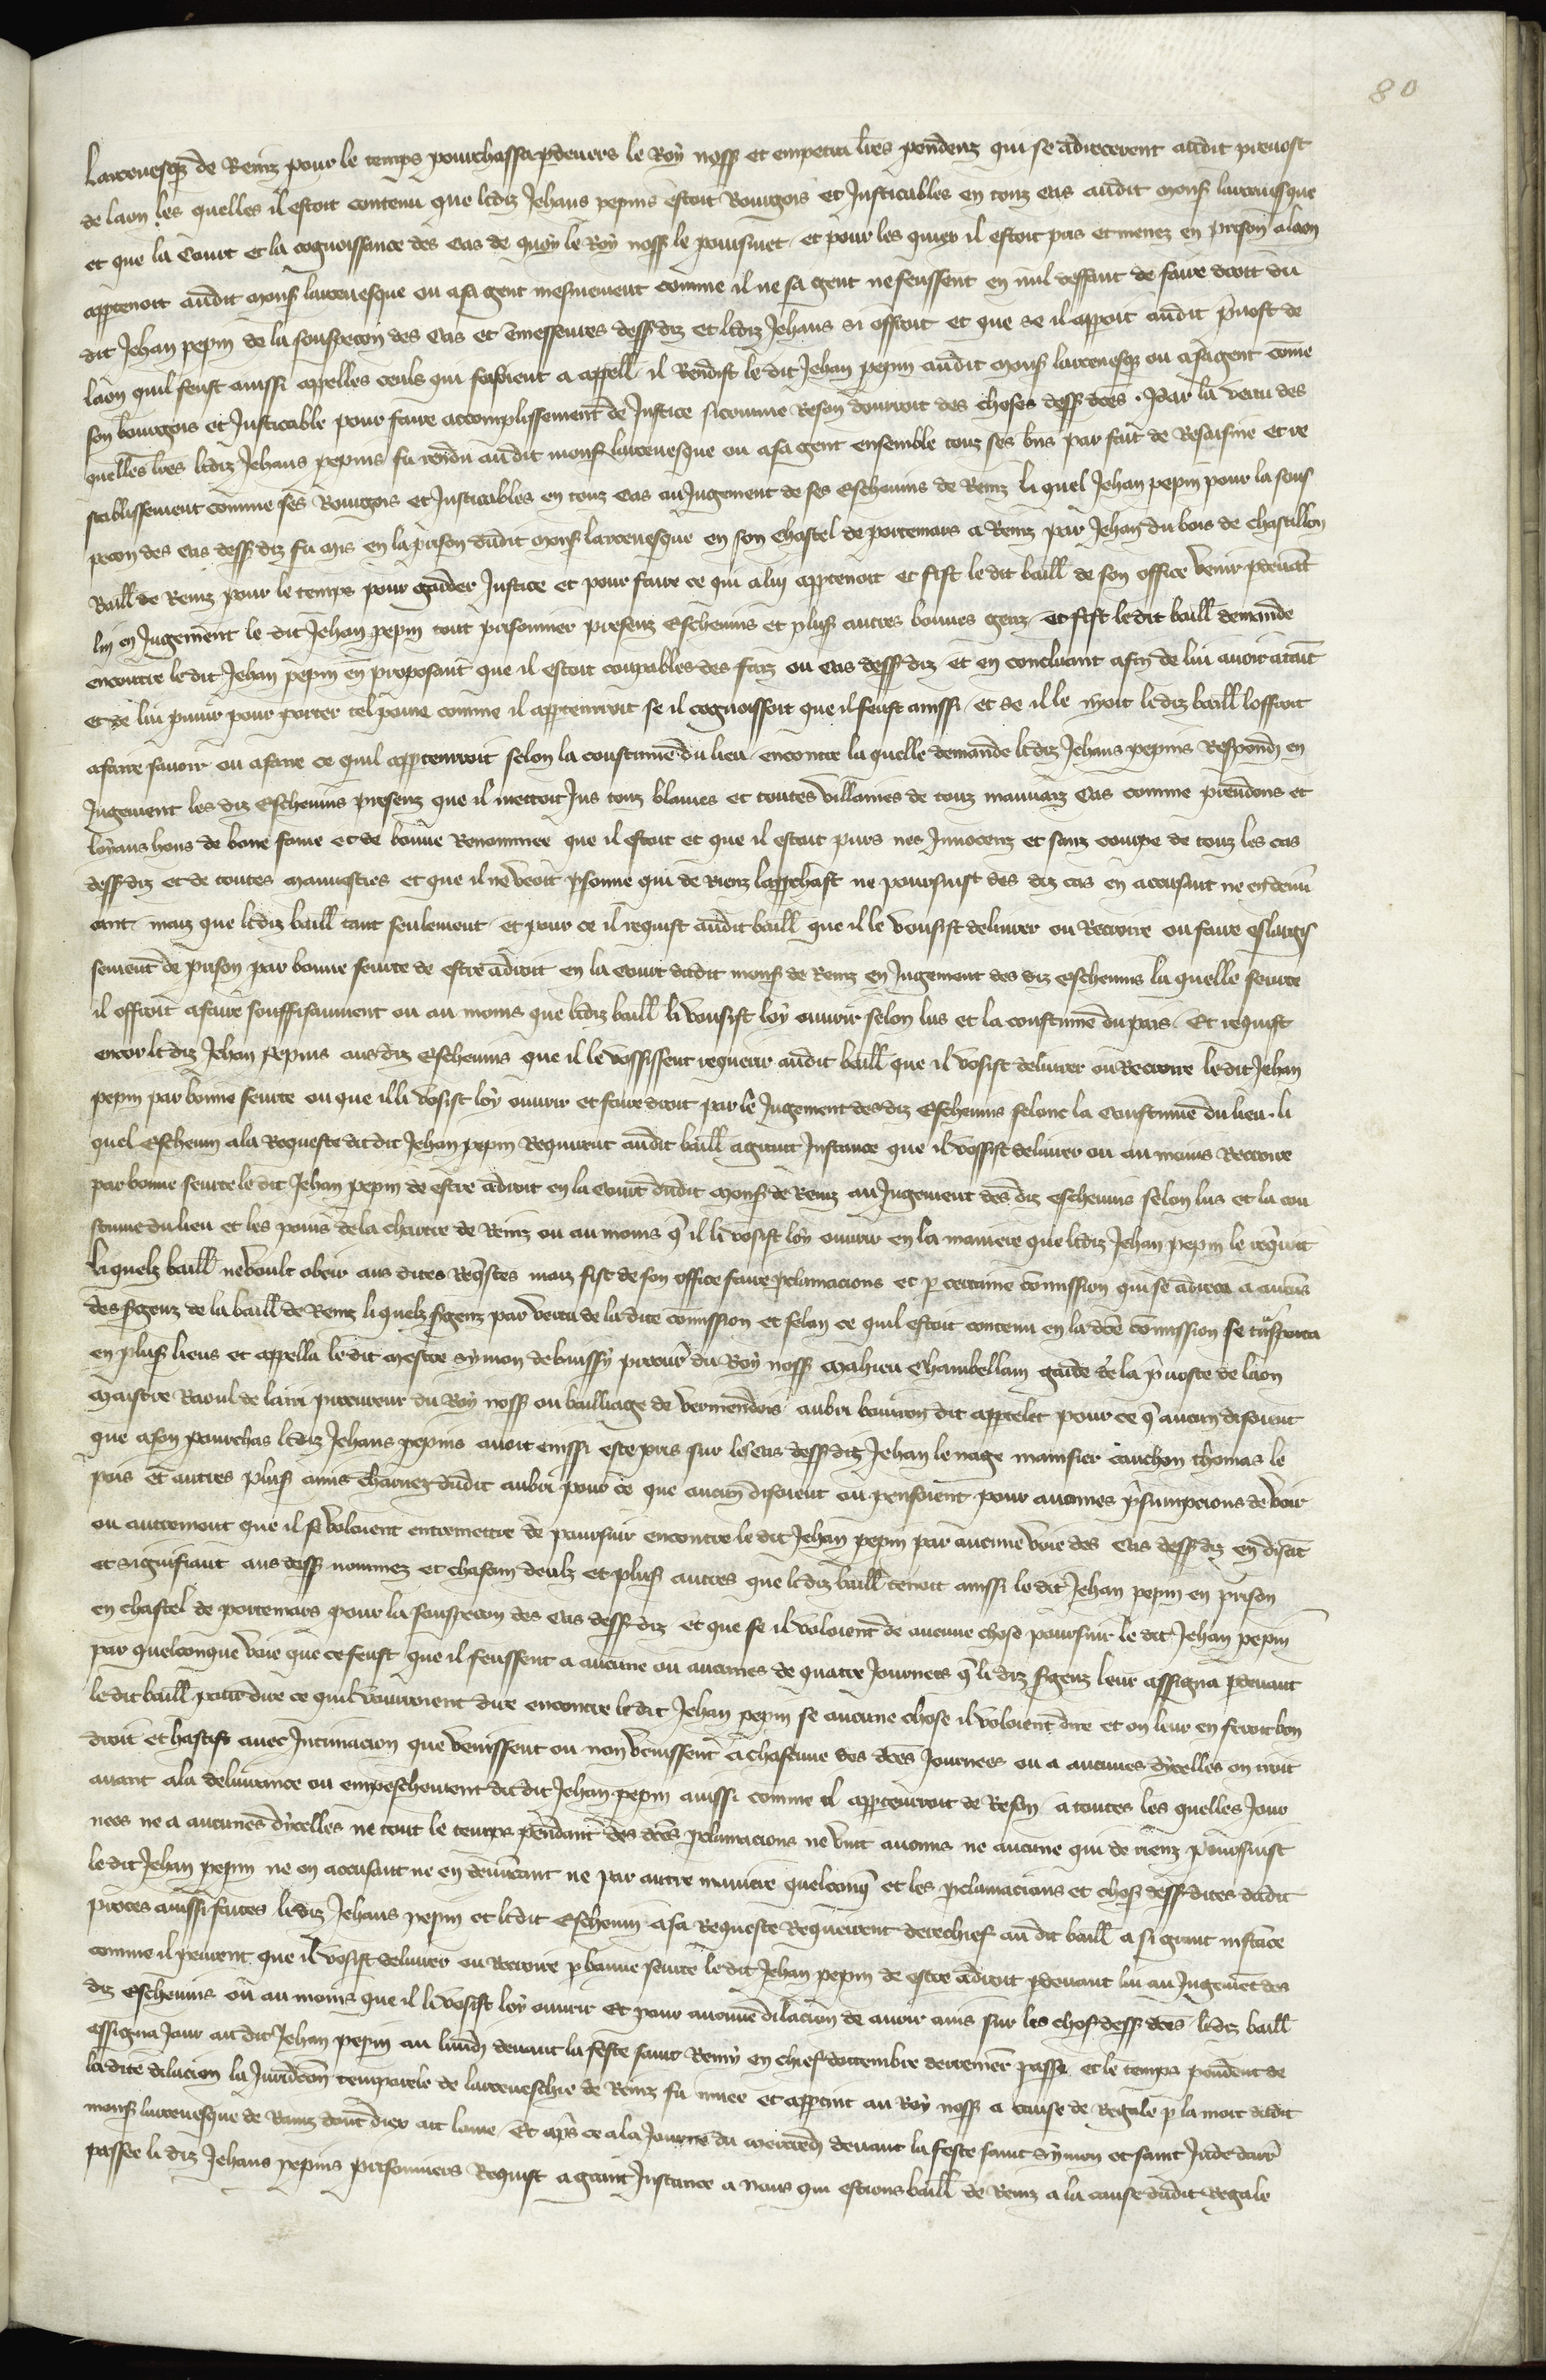 80
Larcevesq̃ de Reinz pour le temps pourchassa p devers le Roy noss̃ et empetra lr̃es pendenz qui se adrecerent audit prevost
de laon les quelles il estoit contenu que ledis Jehans pepins estoit Bourgois et Justicables en touz cas audit mons̃ larcevesque
et que la Court et la cognoissance des cas de quoy le Roy noss̃ le poursuiet et pour les quiex il estoit pris et menez en prison a laon
appr̃tenoit audit mons̃ larcevesque ou a sa gent mesmement comme il ne sa gent ne feussent en nul deffaut de faire droit du
dit Jehan pepin de la souspecon des cas et messetes dess̃ diz et ledis Jehans si offroit et que se il apparoit audit pr̃vost de
laon quil feust aussi appelles ceuls qui fesoient a appell̃ il Rendist le dit Jehan pepin audit mons̃ larcevesq̃ ou a sa gent com̃e
son bourgois et Justicable pour faire accomplissement de Justice si comme Reson donroit des choses dess̃ dc̃es. Par la vertu des
quelles lr̃es ledis Jehans pepins fu rendu audit mons̃ larcevesque ou a sa gent ensemble touz ses bñs par fait de Resaisine et re
stablissement comme ses Bourgois et Justicables en touz cas au Jugement de ses Eschevins de Reinz li quel Jehan pepin pour la sous
pecon des cas dess̃ diz fu mis en la prison dudit mons̃ larcevesque en son chastel de portemars a Reinz par Jehan du bois de chastillon
Baill̃ de Reinz pour le temps pour garder Justice et pour faire ce qui a lui appr̃tenoit et fist le dit baill̃ de son office venir p devant
lui en Jugement le dit Jehan pepin tout prisonnier presenz Eschevins et plus̃ autres bonnes genz et fist ledit baill̃ demande
encontre le dit Jehan pepin en proposant que il estoit coupables des faiz ou cas dess̃ diz et en concluant a fin de lui avoir ataint
et de lui punir pour porter tel poine comme il appr̃tenroit se il cognoissoit que il feust aussi et se il le nyoit ledis baill̃ loffroit
a faire savoir ou a faire ce quil appr̃tenroit selon la coustume du lieu encontre la quelle demande ledis Jehans pepins Respond̃ en
Jugement les diz Eschevins presenz que il mettoit Jus touz blames et toutes villainies de touz mauvaiz cas comme preudons et
loyaus hons de bone fame et de bonne Renommee que il estoit et que il estoit purs nes Innocenz et sanz coupe de touz les cas
dess̃ diz et de toutes mauvestiés et que il ne veoit p̃sonne qui de rienz lapprochast ne poursuist des diz cas en accusant ne en denun
cant mais que ledis baill̃ tant seulement et pour ce il requist audit baill̃ que il le vousist delivrer ou Recroire ou faire eslargis
sement de prison par bonne seurte de estre a droit en la court dudit mons̃ de Reinz en Jugement des diz Eschevins la quelle seurte
il offroit a faire souffisaument ou au moins que ledis baill̃ li vousist loy ouvrir selon lus et la coustume du pais Et requist
encor ledis Jehan Pepins aus diz Eschevins que il le vossissent requerir audit baill̃ que il vosist delivrer ou Recroire le dit Jehan
pepin par bonne seurte ou que il li vosist loy ouvrir et faire droit par le Jugement des diz Eschevins selonc la Coustume du lieu. li
quel Eschevin a la Requeste du dit Jehan pepin Requirent audit baill̃ a grant Instance que il vossist delivrer ou au moins Recroire
par bonne seurte le dit Jehan pepin de estre a droit en la court dudit mons̃ de Reinz au Jugement des diz eschevins selon lus et la cou
stume du lieu et les poins de la chartre de Reinz ou au moins q̃ il li vosist loy ouvrir en la maniere que ledis Jehan pepin le req̃roit
li quelz baill̃ ne voult obeir aus dites Req̃stes maiz fist de son office faire p̃clamacions et p certaine com̃ission qui se adreca a aucuns
des s̃genz de la baill̃ de Reinz li quelz s̃genz par vertu de la dite com̃ission et selon ce quil estoit contenu en la dc̃e com̃ission se tr̃sporta
en plus̃ lieus et appella ledit mestre Symon de bussy procur̃ du Roy noss̃ Mahieu Chambellain garde de la pr̃voste de laon
Maistre Raoul de lairi procureur du Roy noss̃ ou bailliage de vermendois aubri bourron dit apptelet pour ce q̃ aucun disoient
que a son pourchas ledis Jehans pepins avoit einssi este pris sur les cas dess̃ diz Jehan le nage mainsier cauchon thomas le
pois et autres plus̃ amis charnez dudit aubri pour ce que aucun disoient ou pensoient pour aucunes pr̃sumpcions de voir
ou autrement que il se voloient entremettre de poursuir encontre le dit Jehan pepin par aucune voie des cas dess̃ diz en disant
et signifiant aus dess̃ nommez et chascun deulz et plus̃ autres que ledis baill̃ tenoit aussi le dit Jehan pepin en prison
en chastel de portemars pour la souspecon des cas dess̃ diz et que se il voloient de aucune chose poursuir le dit Jehan pepin
par quelconque voie que ce feust que il feussent a aucune ou aucunes de quatre Journees q̃ li diz s̃genz leur assigna p devant
ledit baill̃ pour dire ce quil vourroient dire encontre le dit Jehan pepin se aucune chose il voloient dire et on leur en feroit bon
droit et hastif avec Intimacion que venissent ou non venissent a chascune des dc̃es Journees ou a aucunes dycelles on iroit
avant a la delivrance ou empeschement du dit Jehan pepin aussi comme il appr̃tenroit de Reson a toutes les quelles Jour
nees ne a aucunes dycelles ne tout le temps pendant des dc̃es p̃clamacions ne vint aucuns ne aucune qui de rienz poursuist
le dit Jehan pepin ne en accusant ne en denuncant ne par autre maniere quelconq̃ et les p̃clamacions et chos̃ dess̃ dites dudit
proces aussi faites ledis Jehans pepin et ledit Eschevin a sa Requeste Requirent derechief audit baill̃ a si grant instance
comme il peurent que il vosist delivrer ou Recroire p bonne seurte le dit Jehan pepin de estre a droit p devant lui au Jugemẽt des
diz Eschevins ou au moins que il li vosist loy ouvrir Et pour aucune dilacion de avoir avis sur les chos̃ dess̃ dc̃es ledis baill̃
assigna Jour au dit Jehan pepin au lundi devant la feste saint Remy en chief doctembre derrenier passe et le temps pendent de
la dite dilacion la Juridicc̃on temporele de larceveschie de Reinz fu mue et appr̃tint au Roy noss̃ a cause de Regale p la mort dudit
mons̃ larcevesque de Rainz dont diex ait lame Et apr̃s ce a la Journee du mercredi devant la feste saint Symon et saint Jude darr̃
passee li diz Jehans pepins prisonniers Requist a grant Instance a nous qui estions baill̃ de Reinz a la cause dudit Regale